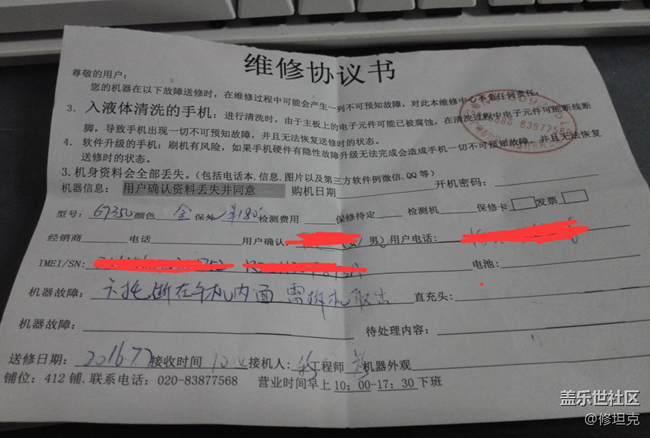 维修协议书
尊敬的用户:
您的机器在以下故障送修时,在维修过程中可能会产生一列不可预知故障,对此本维修中心不负任何责任:
3.入液体清洗的手机:进行清洗时,由于主板上的电子元件可能已被腐蚀,在清洗过程中电子元件可能断线断
脚,导致手机出现一切不可预知故障,并且无法恢复送修时的状态。
4.软件升级的手机:刷机有风险,如果手机硬件有隐性故障升级无法完成会造成手机一切不可预知故障,并且无法恢复
送修时的状态。
3.机身资料会全部丢失。(包括电话本.信息.图片以及第三方软件例微信.QQ等)
机器信息: 用户确认资料丢失并同意 购机日期 开机密码:
型号: G9350 颜色 金 保处 检测费用 保修待定 检测机 保修卡 发票
经销商 电话 用户确认 男) 用户电话:
IMEI/SN: 电池:
机器故障: 卡托断在手机内面 需拆机取出 直充头:
机器故障: 待处理内容:
送修日期: 2016.7.7 接收时间 接机人: 工程师 机器外观
铺位:412铺.联系电话:020-83877568 营业时间早上10:00-17:30下班
83877568
盖乐世社区
@修坦克